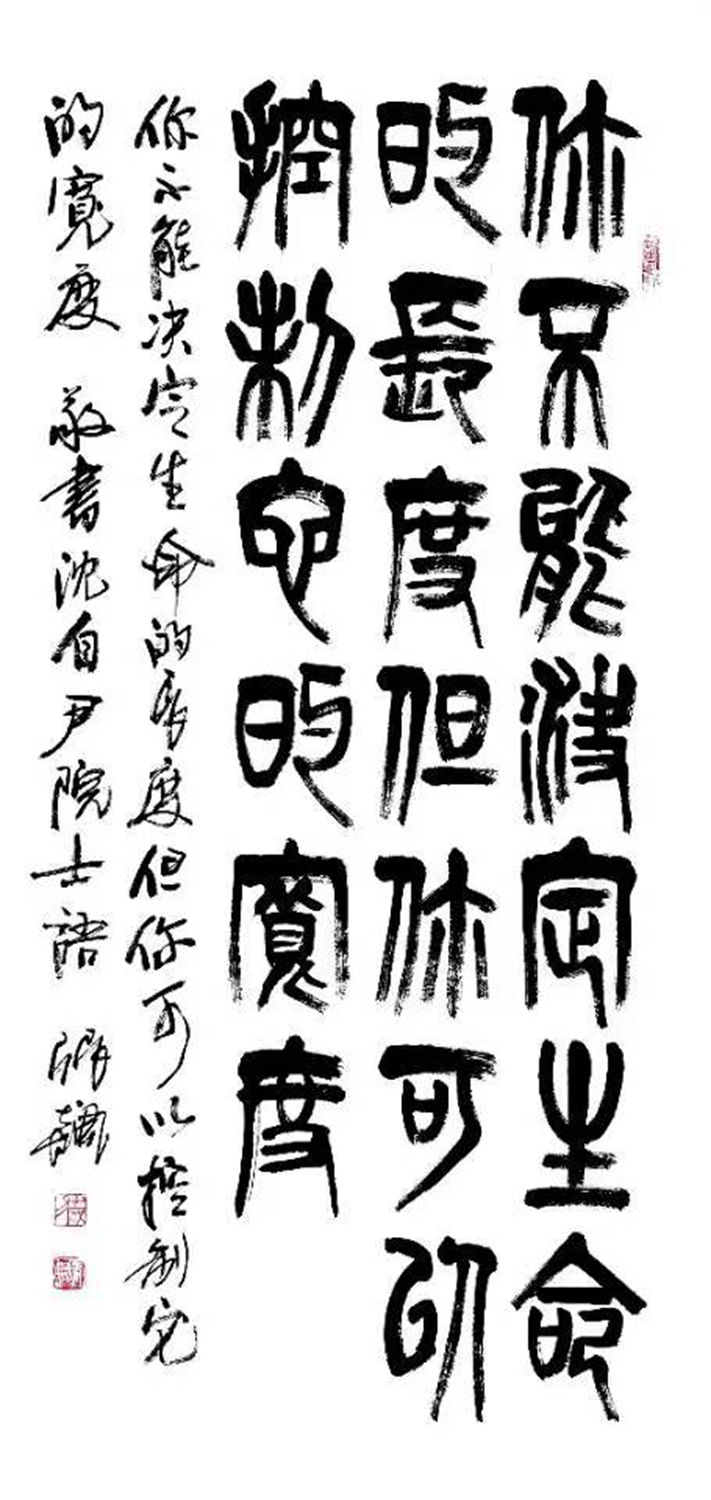 你不能決定生命
的長度但你可以
控制它的寬度
你不能决定生命的长度但你可以控制它
的寬度 敬書沈自尹院士語